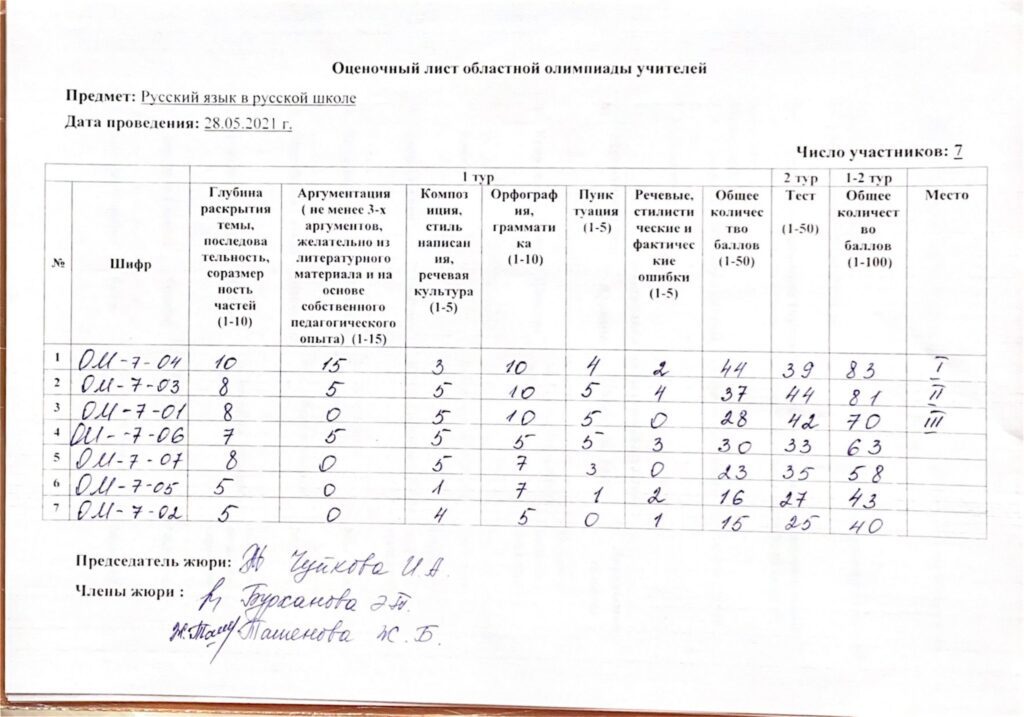 Оценочный лист областной олимпиады учителей
Предмет: Русский язык в русской школе
Дата проведения: 28.05.2021 г.
Число участников: 7
1 тур 2 тур 1-2 тур
№ Шифр Глубина раскрытия темы, последова тельность, соразмер ность частей (1-10) Аргументация ( не менее 3-х аргументов, желательно из литературного материала и на основе собственного педагогического опыта) (1-15) Композ иция, стиль написан ия, речевая культура (1-5) Орфограф ия, граммати ка (1-10) Пунк туация (1-5) Речевые, стилисти ческие и фактичес кие ошибки (1-5) Общее количес тво баллов (1-50) Тест (1-50) Общее количест во баллов (1-100) Место
1 ОМ-7-04 10 15 3 10 4 2 44 39 83 I
2 ОМ-7-03 8 5 5 10 5 4 37 44 81 II
3 ОМ-7-01 8 0 5 10 5 0 28 42 70 III
4 ОМ-7-06 7 5 5 5 5 3 30 33 63
5 ОМ-7-07 8 0 5 7 3 0 23 35 58
6 ОМ-7-05 5 0 1 7 1 2 16 27 43
7 ОМ-7-02 5 0 4 5 0 1 15 25 40
Председатель жюри: Чуйкова И.А.
Члены жюри : Бурханова Э.Т.
Ташенова Ж.Б.